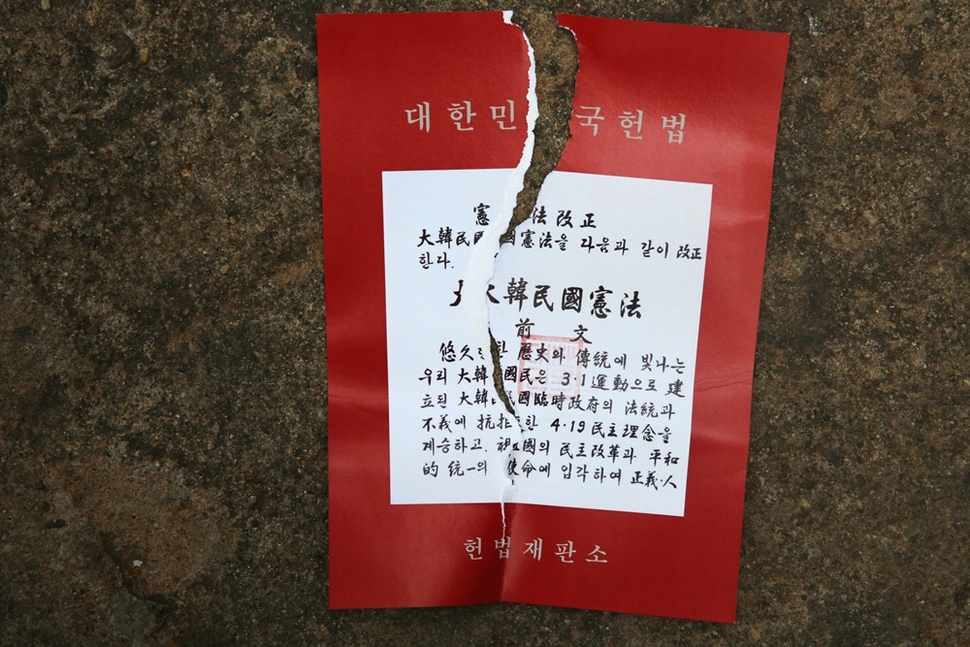 대한민국헌법
憲 法改正
大韓民國憲法을 다음과 같이 改正
한다.
大韓民國憲法
前 文
悠久한 歷史와 傳統에 빛나는
우리 大韓國民은 3·1運動으로 建
立된 大韓民國臨時政府의 法統과
不義에 抗拒한 4·19民主理念을
계승하고, 祖國의 民主改革과 平和
的 統一의 使命에 입각하여 正義·人
헌법재판소